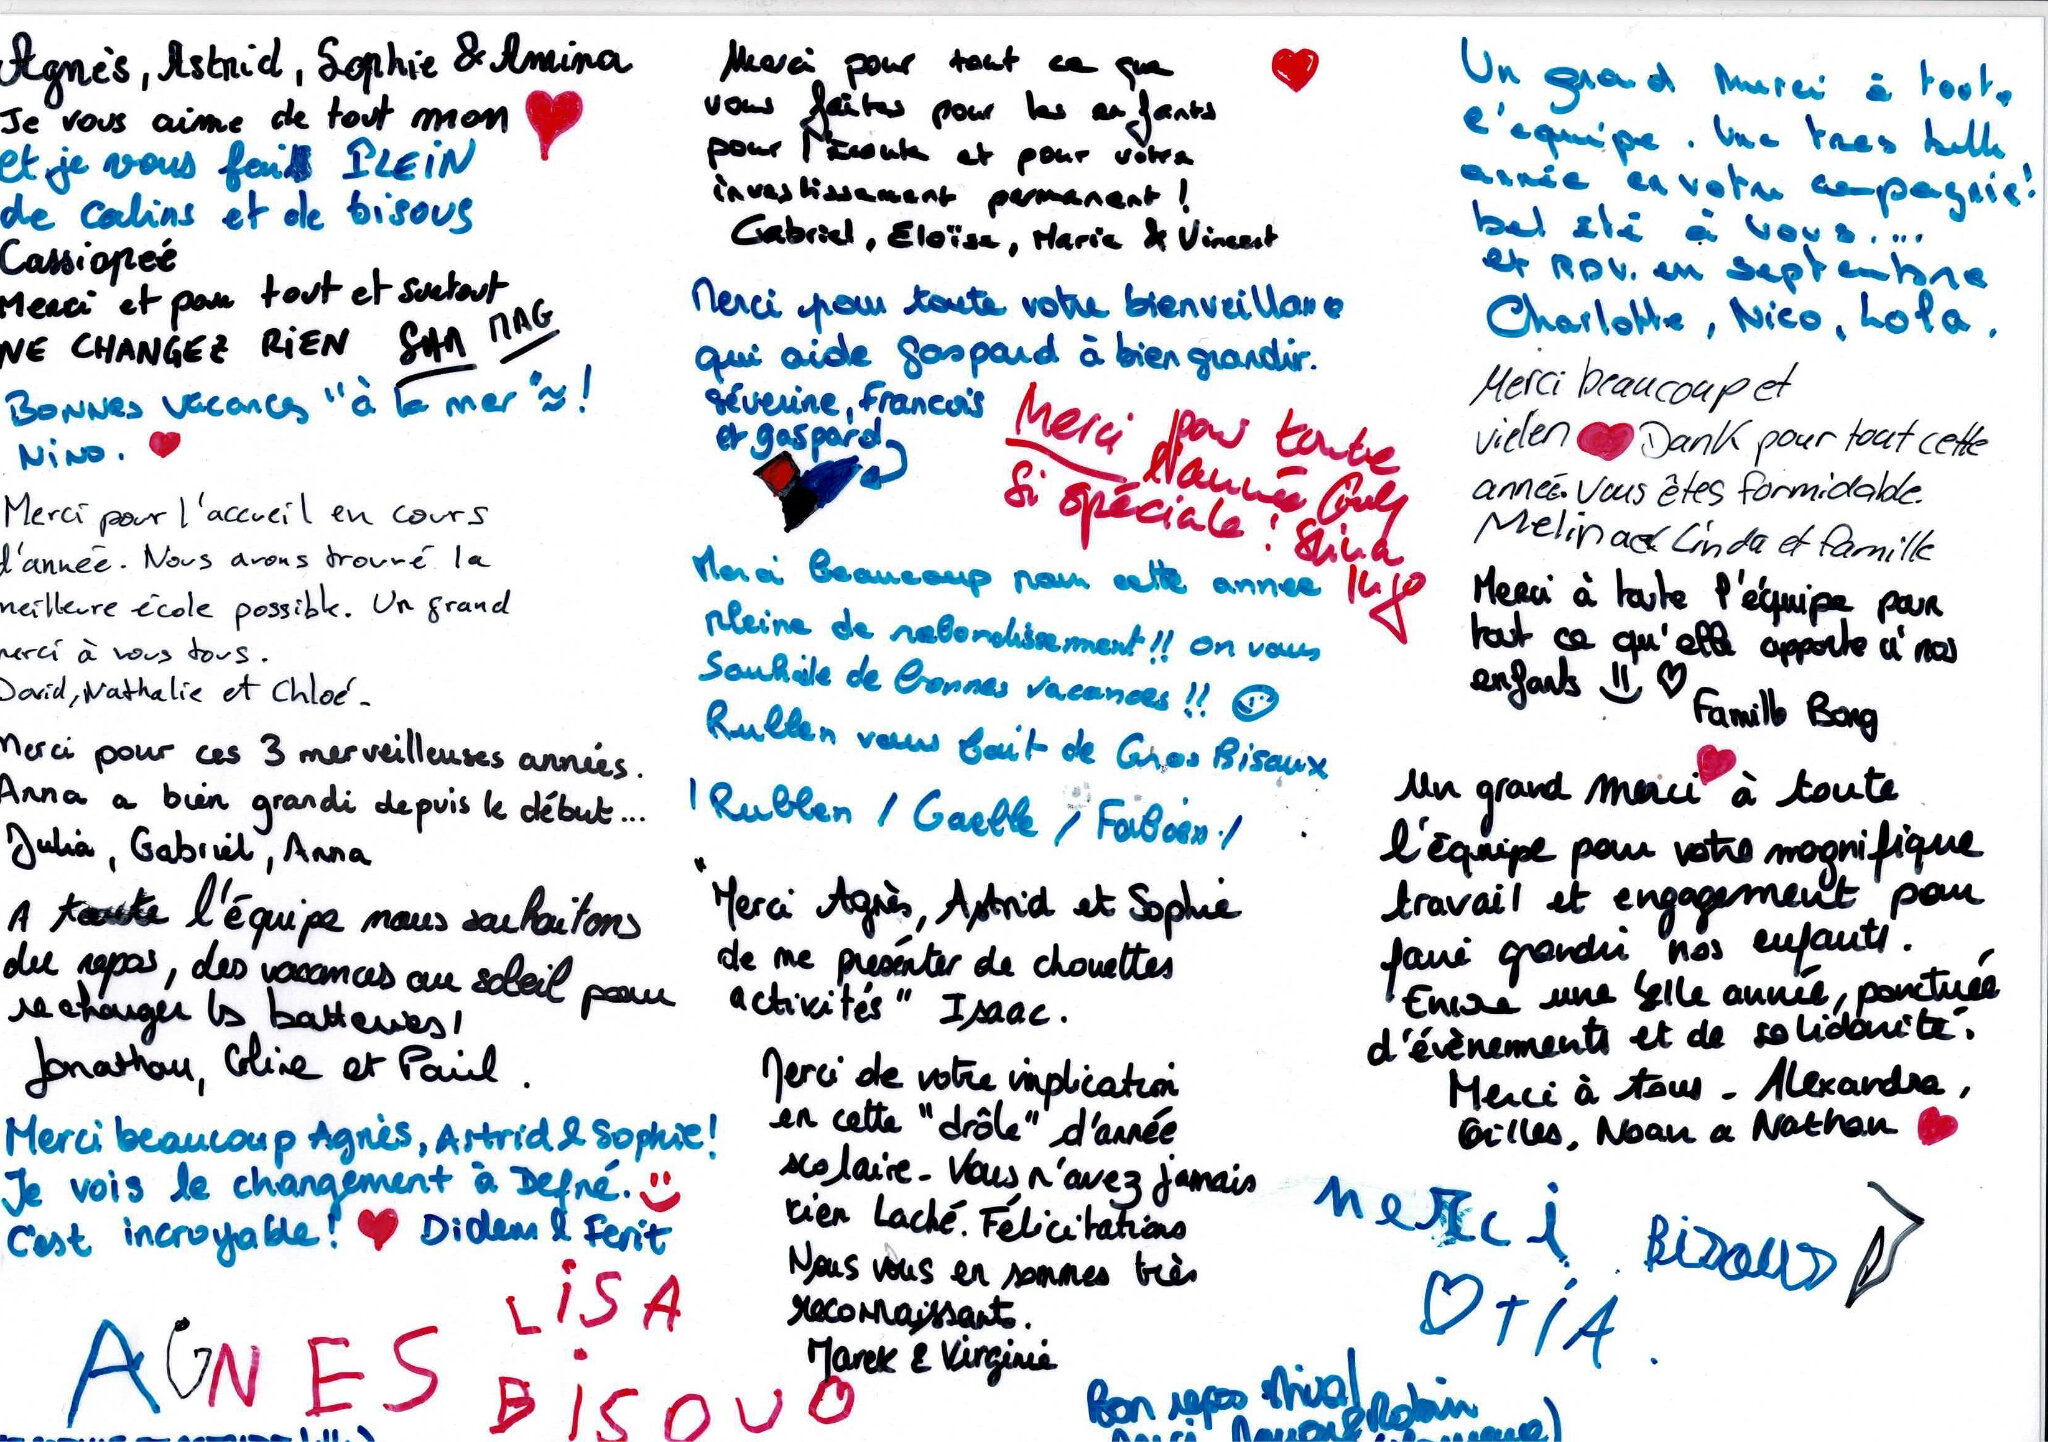 Agnès, Astrid, Sophie & Amina
Je vous aime de tout mon
et je vous fais PLEIN
de calins et de bisous
Cassiopeé
Merci et pour tout et surtout
NE CHANGEZ RIEN
Bonnes vacances "à la mer" !
Nino.
Merci pour l'accueil en cours
d'année. Nous avons trouvé la
meilleure école possible. Un grand
merci à vous tous.
David, Nathalie et Chloé.
Merci pour ces 3 merveilleuses années.
Anna a bien grandi depuis le début...
Julia, Gabriel, Anna
A toute l'équipe nous souhaitons
du repos, des vacances au soleil pour
rechanger les batteries!
Jonathan, Céline et Paul.
Merci beaucoup Agnès, Astrid & Sophie!
Je vois le changement à Defné.
C'est incroyable! Didem & Ferit
LISA
AGNES
BISOUO
Merci pour tout ce que
vous faites pour les enfants
pour l'écoute et pour votre
investissement permanent !
Gabriel, Eloïse, Marie & Vincent
Merci pour toute votre bienveillance
qui aide Gaspard à bien grandir.
Séverine, François
et gaspard
Merci pour toute
l'année
si spéciale !
Merci beaucoup pour cette annee
pleine de rebondissement!! On vous
Souhaite de bonnes vacances !!
Rubben vous fait de Gros Bisoux
/ Rubben / Gaelle / Fabien /
"Merci Agnès, Astrid et Sophie
de me présenter de chouettes
activités" Isaac.
Merci de votre implication
en cette "drôle" d'année
scolaire - Vous n'avez jamais
rien laché. Félicitations
Nous vous en sommes très
reconnaissants.
Marek & Virginie
Bon repos
& Robin
Un grand merci à toute
l'equipe. Une tres belle
année en votre compagnie!
bel été à vous....
et RDV. en septembre
Charlotte, Nico, Lola.
Merci beaucoup et
vielen Dank pour tout cette
année. Vous êtes formidable.
Melina & Linda et famille
Merci à toute l'équipe pour
tout ce qu'elle apporte à nos
enfants
Famille Bong
Un grand merci à toute
l'équipe pour votre magnifique
travail et engagement pour
faire grandir nos enfants.
Encore une belle année, ponctuée
d'évènements et de solidarité.
Merci à tous - Alexandra,
Gilles, Noan & Nathan
merci
Bisous
TIA.